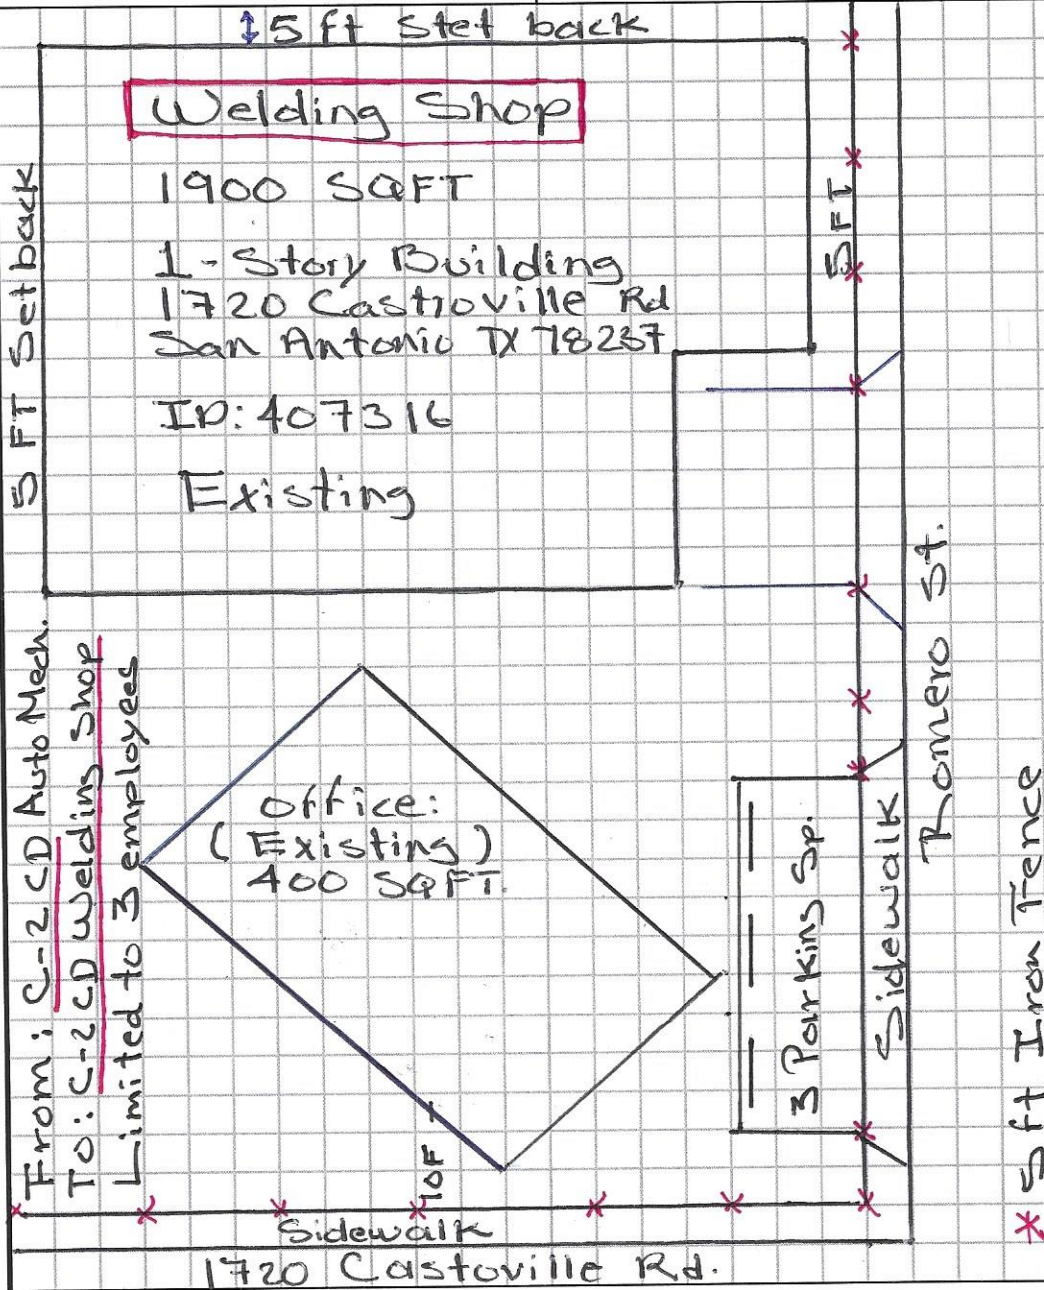 5 ft Stet back
Welding Shop
1900 SQFT
1-Story Building
1720 Castroville Rd
San Antonio TX 78237
ID: 407316
Existing
5 FT Setback
5FT
From: C-2 CD Auto Mech.
To: C-2 CD Welding Shop
Limited to 3 employees
office:
(Existing)
400 SQFT.
10F
3 Parking Sp.
Sidewalk
Romero St.
* 5ft Iron Fence
Sidewalk
1720 Castoville Rd.